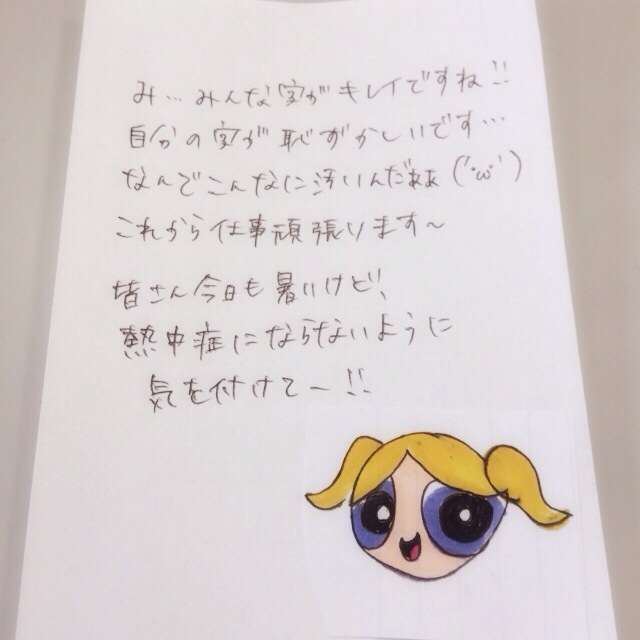 み…みんな字がキレイですね!!
自分の字が恥ずかしいです…
なんでこんなに汚いんだねぇ(´･ω･`)
これから仕事頑張ります〜
皆さん今日も暑いけど、
熱中症にならないように
気を付けてー!!